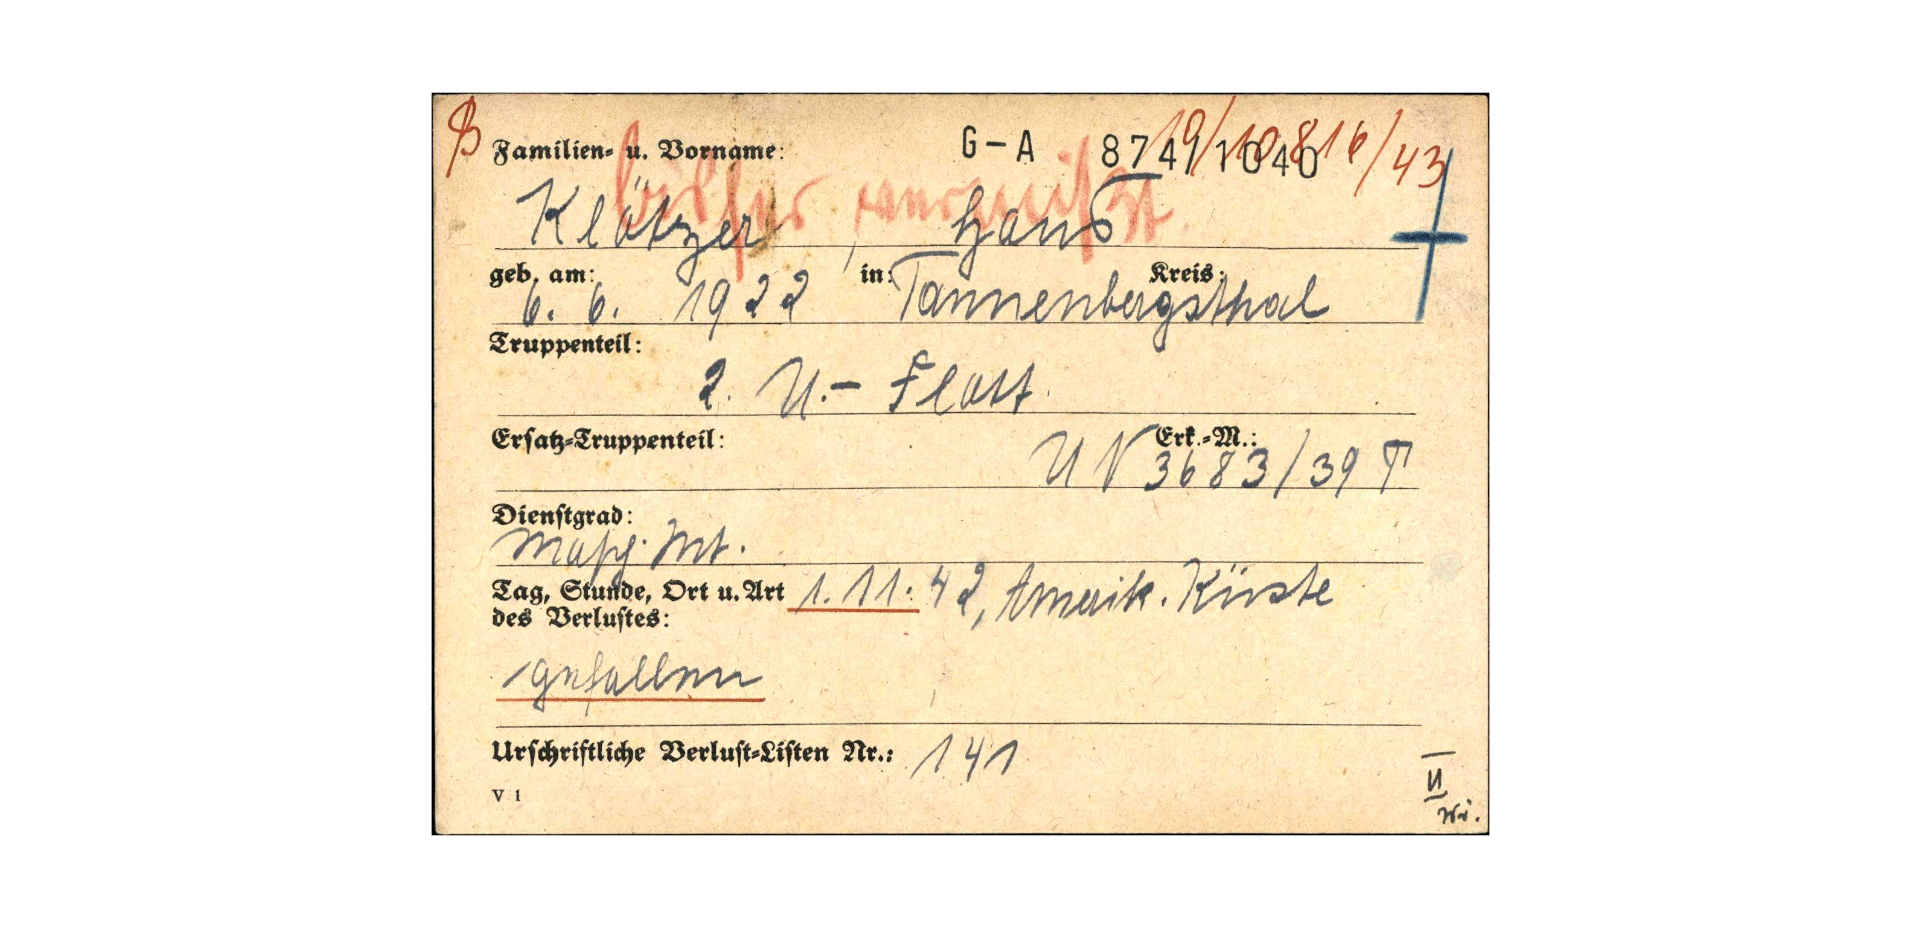 Familien- u. Vorname: G-A 874/1040 19/10816/43
bisher vermißt.
Klötzer, Hans
geb. am: in: Kreis:
6. 6. 1922 Tannenbergsthal
Truppenteil:
2. U.- Flott.
Ersatz-Truppenteil: Erk.-M.:
UN 3683/39 T
Dienstgrad:
Masch. Mt.
Tag, Stunde, Ort u. Art 1. 11. 42, Amerik. Küste
des Verlustes:
gefallen
Urschriftliche Verlust-Listen Nr.: 141
V 1
II